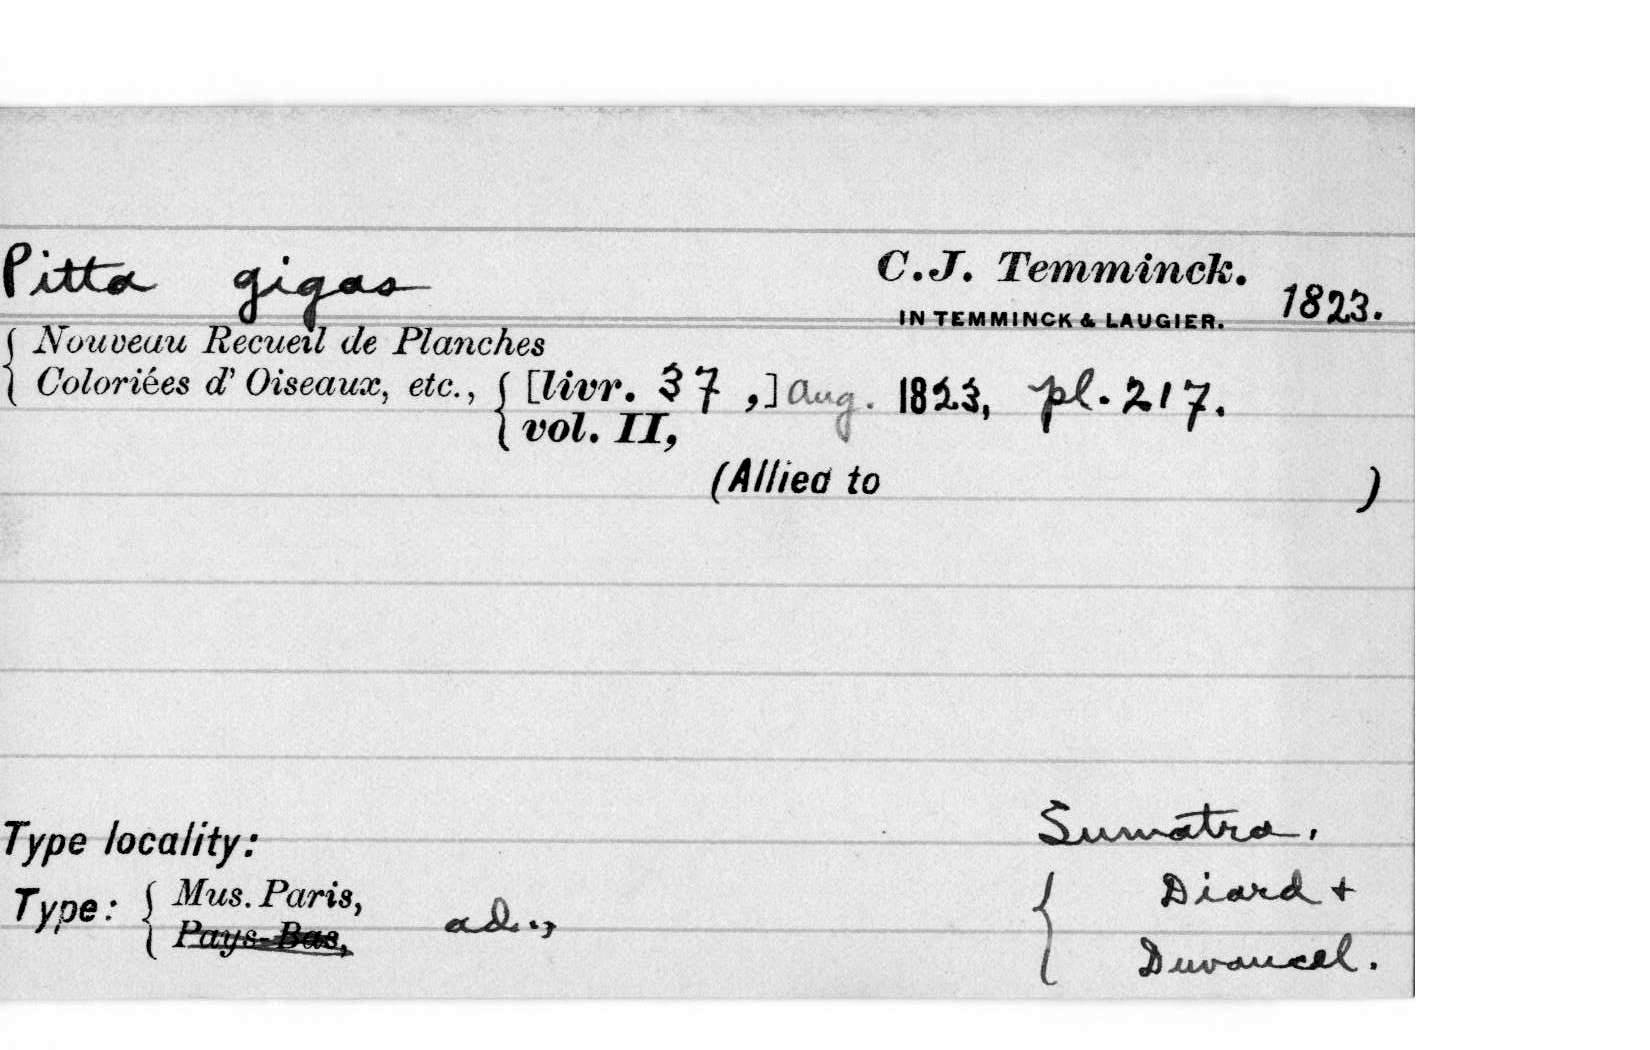 Pitta gigas C.J. Temminck. 1823.
IN TEMMINCK & LAUGIER.
{ Nouveau Recueil de Planches
Coloriées d' Oiseaux, etc., { [livr. 37 ,] Aug. 1823, pl. 217.
vol. II,
(Allied to )
Type locality: Sumatra.
Type: { Mus. Paris, ad., { Diard +
Pays-Bas, Duvaucel.